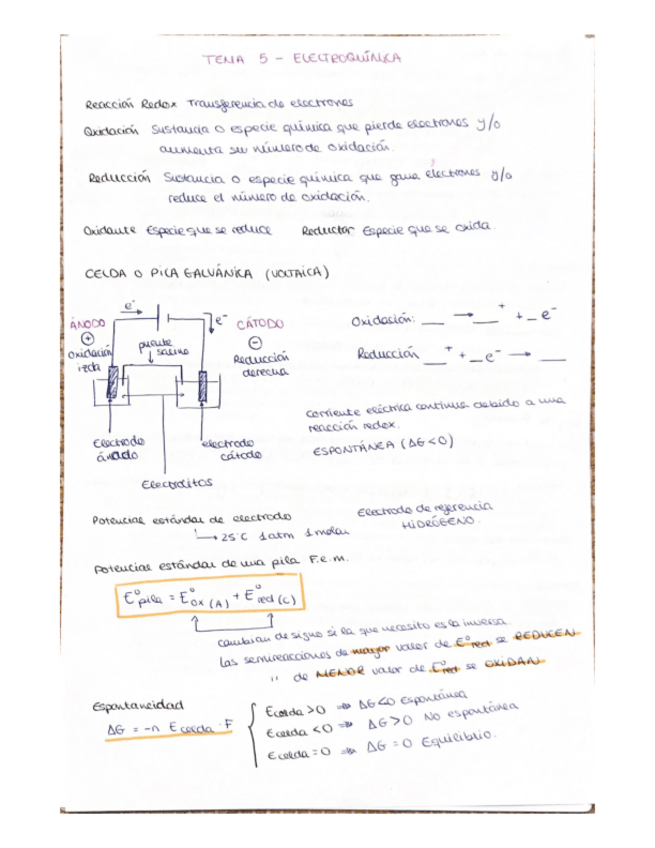 TEMA 5 - ELECTROQUÍMICA
Reacción Redox Transferencia de electrones
Oxidación Sustancia o especie química que pierde electrones y/o
aumenta su número de oxidación.
Reducción Sustancia o especie química que gana electrones y/o
reduce el número de oxidación.
Oxidante Especie que se reduce Reductor Especie que se oxida.
CELDA O PILA GALVÁNICA (VOLTAICA)
e⁻
e⁻
ÁNODO
⊕
Oxidación
izda
puente
salino
CÁTODO
⊖
Reducción
derecha
Electrodo
ánodo
electrodo
cátodo
Electrolitos
Oxidación: __ → __⁺ + _ e⁻
Reducción __⁺ + _ e⁻ → __
Corriente eléctrica continua debido a una
reacción redox.
ESPONTÁNEA (ΔG<0)
Potencial estándar de electrodo
↳ 25°C 1atm 1molar
Electrodo de referencia
HIDRÓGENO.
Potencial estándar de una pila F.e.m.
E°pila = E°ox (A) + E°red (C)
cambian de signo si la que necesito es la inversa.
Las semireacciones de mayor valor de E°red se REDUCEN
" de MENOR valor de E°red se OXIDAN
Espontaneidad
ΔG = -n Ecelda · F
Ecelda >0 ⇒ ΔG<0 Espontánea
Ecelda <0 ⇒ ΔG>0 No espontánea
Ecelda =0 ⇒ ΔG = 0 Equilibrio.